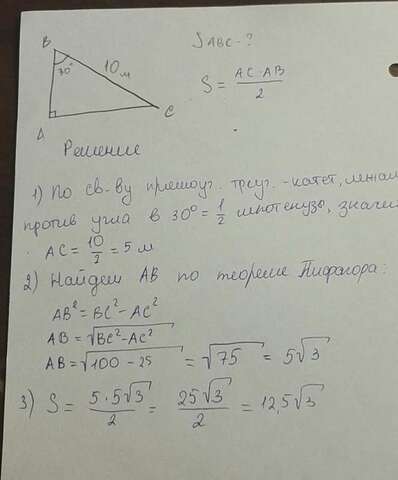 B
30°
10 м
A
C
S ABC - ?
S = AC·AB / 2
Решение
1) По св-ву прямоуг. треуг. - катет,
против угла в 30° = 1/2 гипотенузы,
AC = 10/2 = 5 м
2) Найдем AB по теореме Пифагора:
AB² = BC² - AC²
AB = √BC² - AC²
AB = √100 - 25 = √75 = 5√3
3) S = 5·5√3 / 2 = 25√3 / 2 = 12,5√3